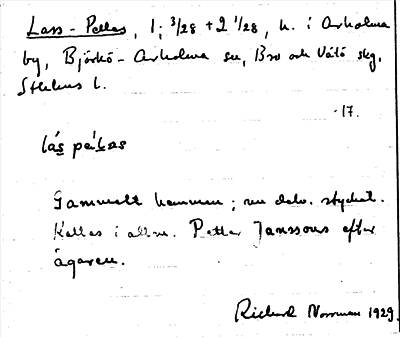 Lass-Pelles, 1; 3/28 + 2 1/28, h. i Arholma
by, Björkö-Arholma sn, Bro och Vätö skg,
Sthlms l.
-17.
lás pȧ́las
Gammalt hemman; nu delv. styckat.
Kallas i allm. Petter Janssons efter
ägaren.
Richard Norrman 1929.